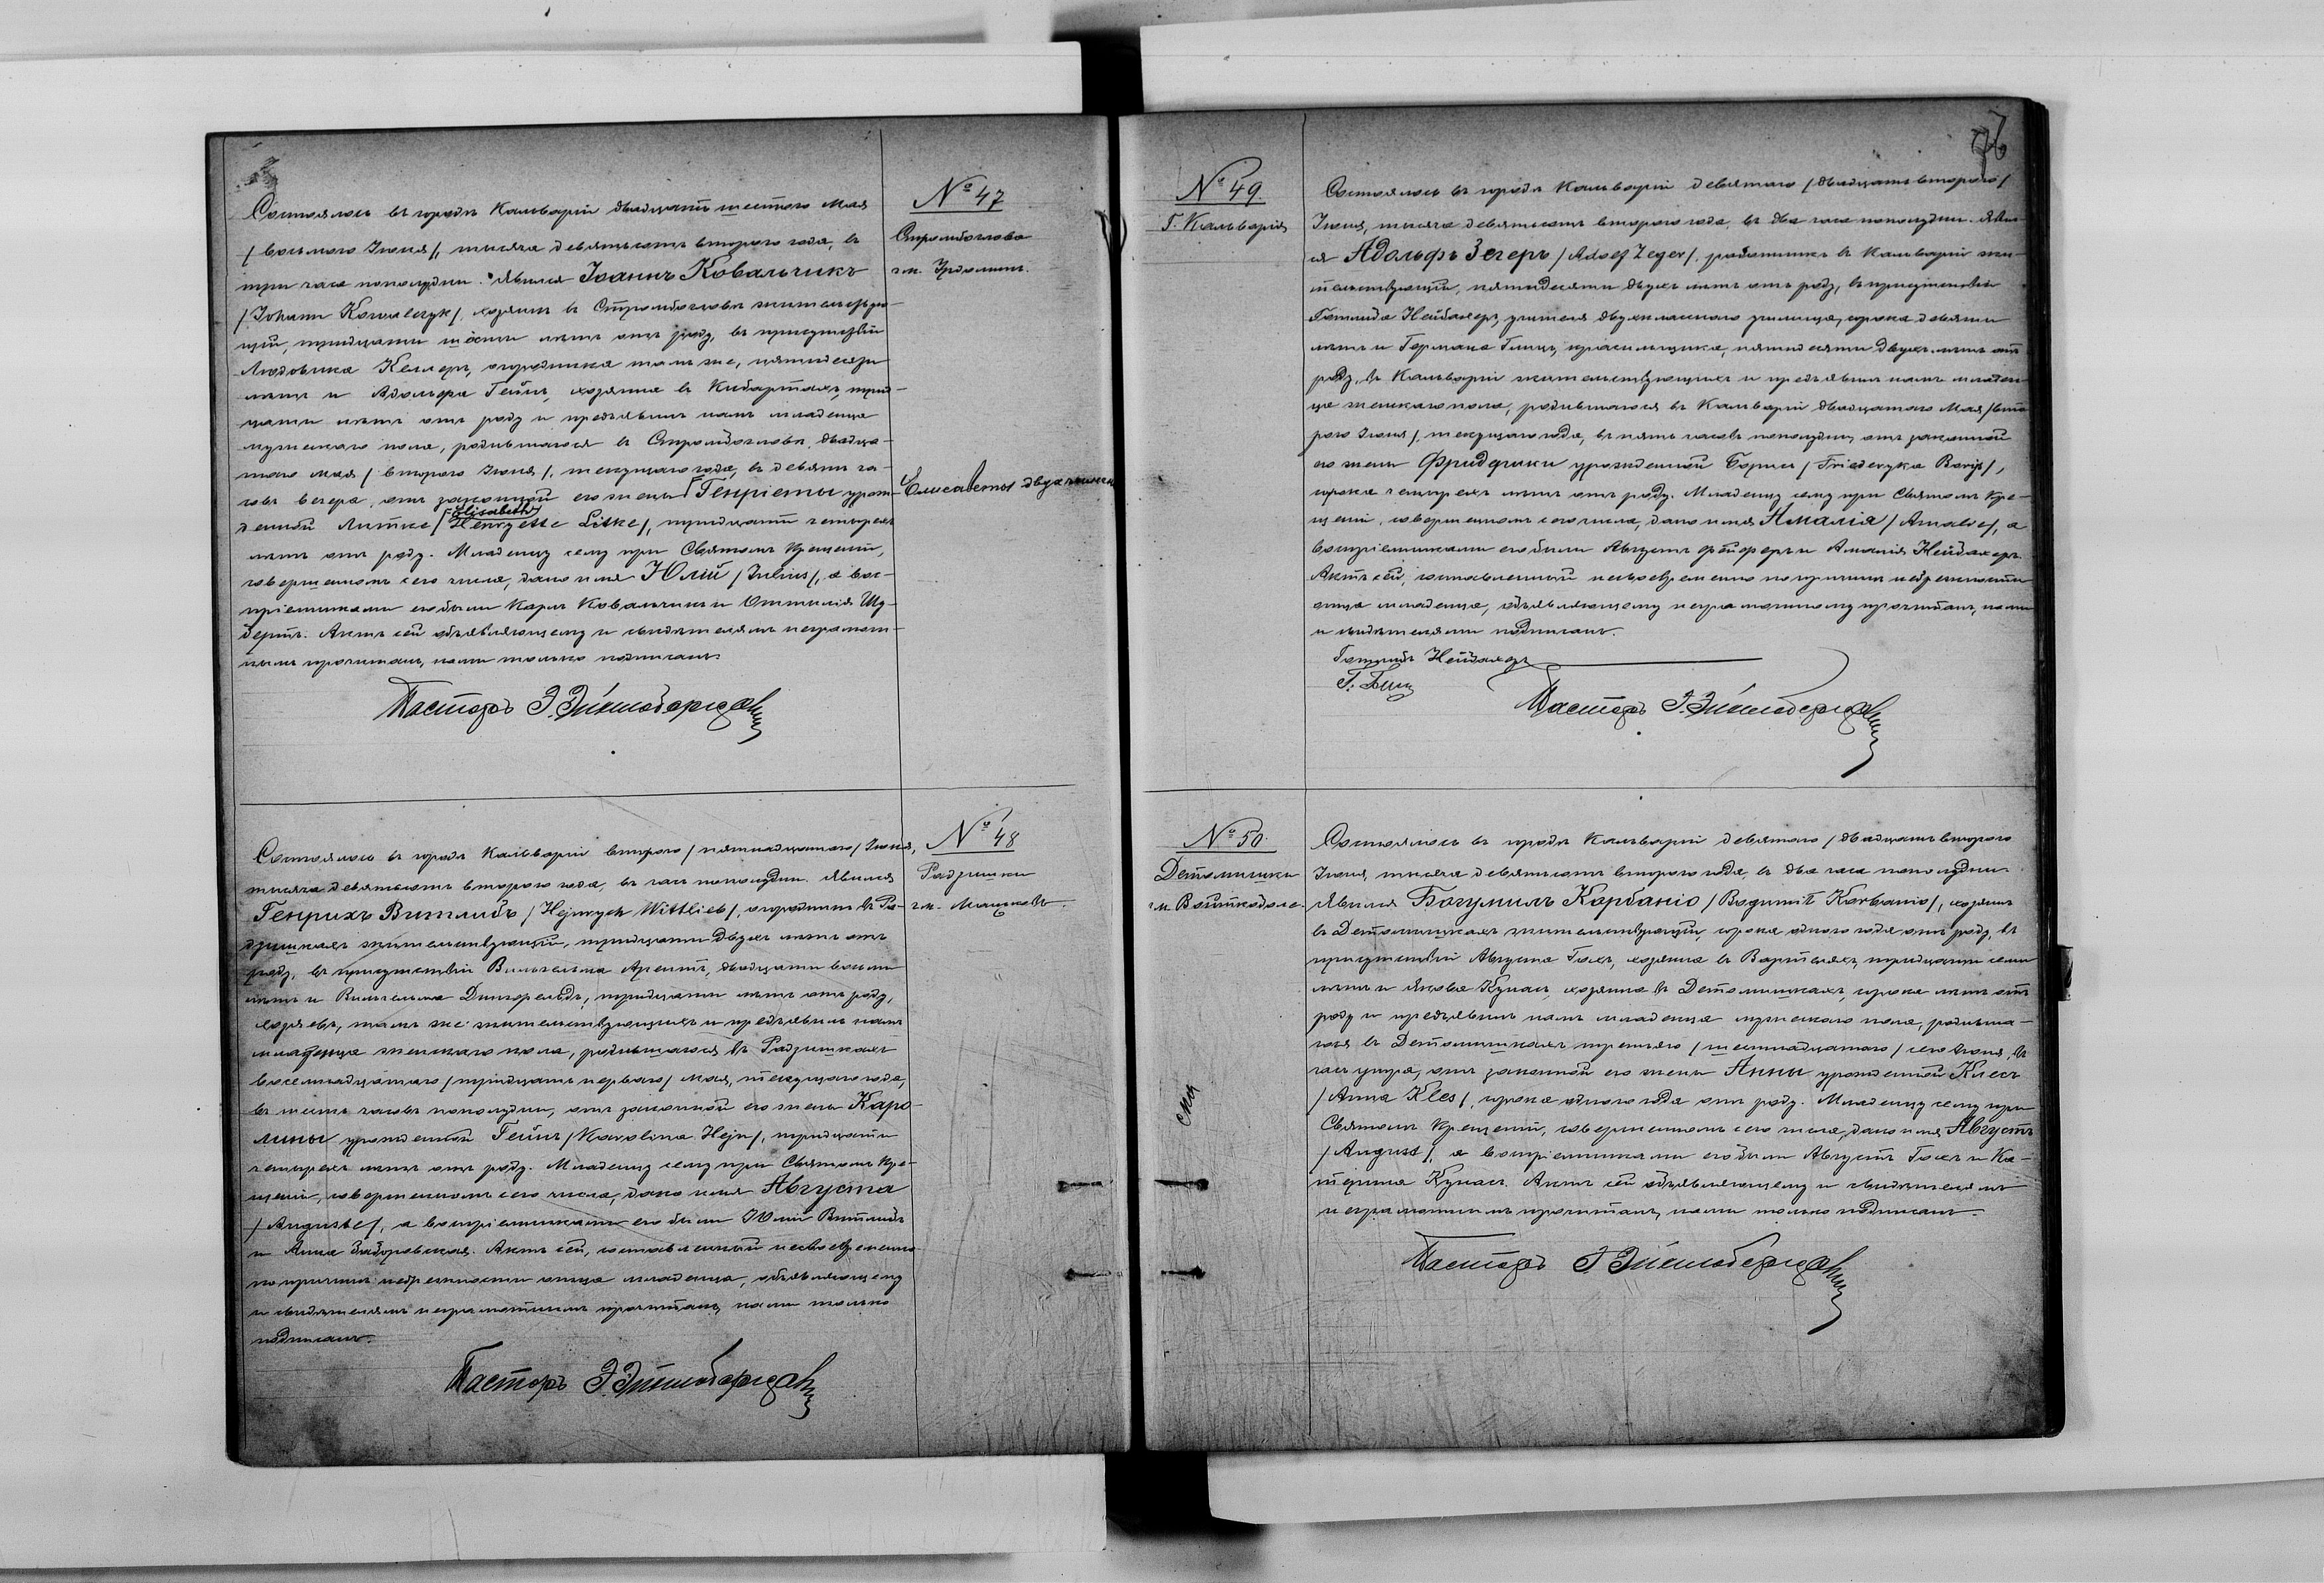 Состоялось въ городѣ Кальваріи двадцать шестого Мая
/восьмого Іюня/, тысяча девятьсотъ второго года, въ
три часа пополудни. Явился Іоаннъ Ковальчикъ
/Johann Kowalczyk/, хозяинъ въ Стромбоглова жительствую-
щій, тридцати шести лѣтъ отъ роду, въ присутствіи
Людовика Келлеръ, огородника тамъ же, пятидесяти
лѣтъ и Адольфа Гейнъ, хозяина въ Кибартахъ, трид-
цати лѣтъ отъ роду и предъявилъ намъ младенца
мужескаго пола, родившагося въ Стромбоглова, двадца-
таго мая /второго Іюня/, текущаго года, въ девять ча-
совъ вечера, отъ законной его жены Генріеты урож-
Elisabeth
денной Литке /Henryette Litke/, тридцати четырехъ
лѣтъ отъ роду. Младенцу сему при Святомъ Крещеніи,
совершенномъ сего числа, дано имя Юлій /Julius/, а вос-
пріемниками его были Карлъ Ковальчикъ и Оттилія Шу-
бертъ. Актъ сей объявляющему и свидѣтелямъ неграмот-
нымъ прочитанъ, нами только подписанъ.
Пасторъ
№ 47
Стромбоглова
гм.
Елисаветы двухъ
Состоялось въ городѣ Кальваріи второго /пятнадцатаго/ Іюня,
тысяча девятьсотъ второго года, въ часъ пополудни. Явился
Генрихъ Витлибъ /Hejnrych Wittlieb/, огородникъ въ Ра-
дзишкахъ жительствующій, тридцати двухъ лѣтъ отъ
роду, въ присутствіи Вильгельма Арентъ, двадцати восьми
лѣтъ и Вильгельма Дингфельдъ, тридцати лѣтъ отъ роду,
хозяевъ, тамъ же жительствующихъ и предъявилъ намъ
младенца женскаго пола, родившагося въ Радзишкахъ
восемнадцатаго /тридцать перваго/ Мая, текущаго года,
въ шесть часовъ пополудни, отъ законной его жены Каро-
лины урожденной Гейнъ /Karolina Hejn/, тридцати
четырехъ лѣтъ отъ роду. Младенцу сему при Святомъ Кре-
щеніи, совершенномъ сего числа, дано имя Августа
/Auguste/, а воспріемниками его были Юлій Витлибъ
и Анна Заборовская. Актъ сей, составленный несвоевременно
по причинѣ небрежности отца младенца, объявляющему
и свидѣтелямъ неграмотнымъ прочитанъ, нами только
подписанъ.
Пасторъ
№ 48
Радзишки
гм.
76
№ 49.
Г. Кальварія
Состоялось въ городѣ Кальваріи девятаго /двадцать второго/
Іюня, тысяча девятьсотъ второго года, въ два часа пополудни. Явил-
ся Адольфъ Зегеръ /Adolf Zeger/, работникъ въ Кальваріи жи-
тельствующій, пятидесяти двухъ лѣтъ отъ роду, въ присутствіи
Готлиба Нейбахеръ, учителя двухкласснаго училища, сорока девяти
лѣтъ и Германа Глицъ, красильщика, пятидесяти двухъ лѣтъ отъ
роду, въ Кальваріи жительствующихъ и предъявилъ намъ младен-
ца женскаго пола, родившагося въ Кальваріи двадцатаго Мая /вто-
рого Іюня/, текущаго года, въ пять часовъ пополудни, отъ законной
его жены Фридерики урожденной Борисъ /Friederyka Borys/,
сорока четырехъ лѣтъ отъ роду. Младенцу сему при Святомъ Кре-
щеніи, совершенномъ сего числа, дано имя Амалія /Amalie/, а
воспріемниками его были Августъ Фейферъ и Амалія Нейбахеръ.
Актъ сей, составленный несвоевременно по причинѣ небрежности
отца младенца, объявляющему неграмотному прочитанъ, нами
и свидѣтелями подписанъ.
Готлибъ Нейбахеръ
Пасторъ
№ 50.
Детомишки
гм.
Состоялось въ городѣ Кальваріи девятаго /двадцать второго
Іюня, тысяча девятьсотъ второго года, въ два часа пополудни
Явился Богумилъ Корбаніо /Bogumił Korbanio/, хозяинъ
въ Детомишкахъ жительствующій, сорока одного года отъ роду, въ
присутствіи Августа Гохъ, хозяина въ Вартеляхъ, тридцати семи
лѣтъ и Якова Кунасъ, хозяина въ Детомишкахъ, сорока лѣтъ отъ
роду и предъявилъ намъ младенца мужескаго пола, родивша-
гося въ Детомишкахъ третьяго /шестнадцатаго/ сего Іюня, въ
часъ утра, отъ законной его жены Анны урожденной Клесъ
/Anna Kles/, сорока одного года отъ роду. Младенцу сему при
Святомъ Крещеніи, совершенномъ сего числа, дано имя Августъ
/August/, а воспріемниками его были Августъ Гохъ и Ка-
терина Кунасъ. Актъ сей объявляющему и свидѣтелямъ
неграмотнымъ прочитанъ, нами только подписанъ.
Пасторъ